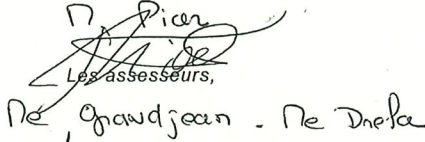 M. Picar
Les assesseurs,
Me Grandjean - Me Drefa